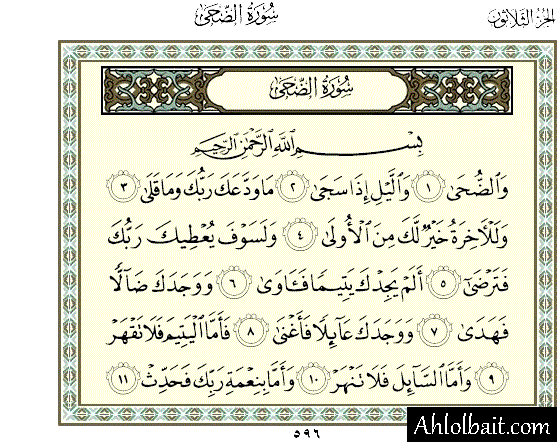 سُورَةُ الضُّحَىٰ الجُزْءُ الثَّلَاثُونَ
سُورَةُ الضُّحَىٰ
بِسْمِ اللَّهِ الرَّحْمَٰنِ الرَّحِيمِ
وَالضُّحَىٰ ١ وَاللَّيْلِ إِذَا سَجَىٰ ٢ مَا وَدَّعَكَ رَبُّكَ وَمَا قَلَىٰ ٣
وَلَلْآخِرَةُ خَيْرٌ لَّكَ مِنَ الْأُولَىٰ ٤ وَلَسَوْفَ يُعْطِيكَ رَبُّكَ
فَتَرْضَىٰ ٥ أَلَمْ يَجِدْكَ يَتِيمًا فَآوَىٰ ٦ وَوَجَدَكَ ضَالًّا
فَهَدَىٰ ٧ وَوَجَدَكَ عَائِلًا فَأَغْنَىٰ ٨ فَأَمَّا الْيَتِيمَ فَلَا تَقْهَرْ
٩ وَأَمَّا السَّائِلَ فَلَا تَنْهَرْ ١٠ وَأَمَّا بِنِعْمَةِ رَبِّكَ فَحَدِّثْ ١١
٥٩٦
Ahlolbait.com